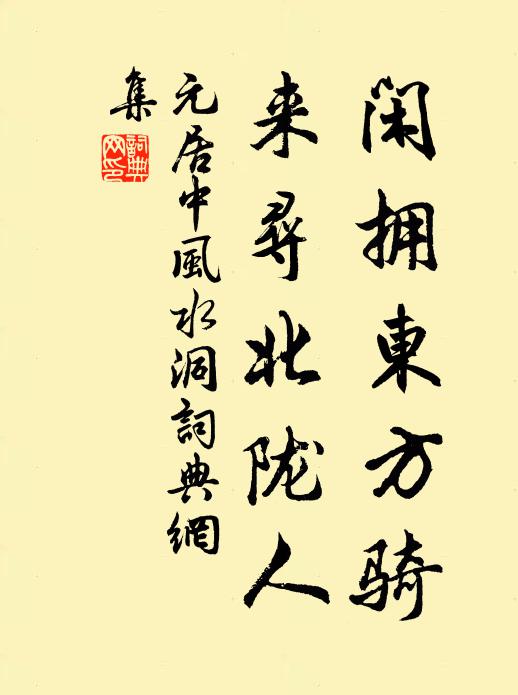 闲拥東方骑
来尋北陇人
元居中風水洞詞典網
集
詞典
网印